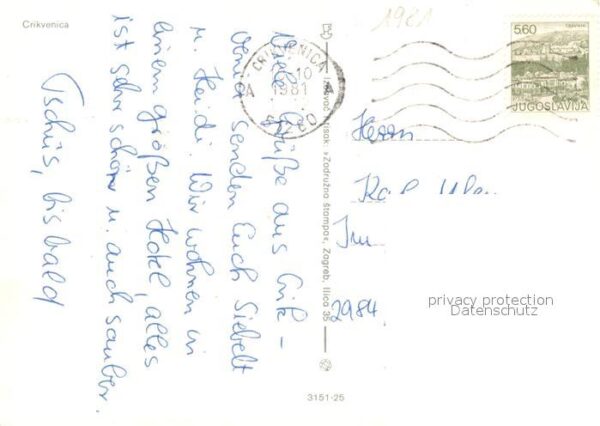 Crikvenica
1981
5,60
JUGOSLAVIJA
CRIKVENICA
10
1981
A
Viele Grüße aus Crik-
venica senden Euch Siebelt
u. Heidi. Wir wohnen in
einem großen Hotel, alles
ist sehr schön u. auch sauber.
Tschüs, bis bald
Izdavač i tisak: »Zadružna štampa«, Zagreb, Ilica 35
Herrn
Im
2984
privacy protection
Datenschutz
3151-25